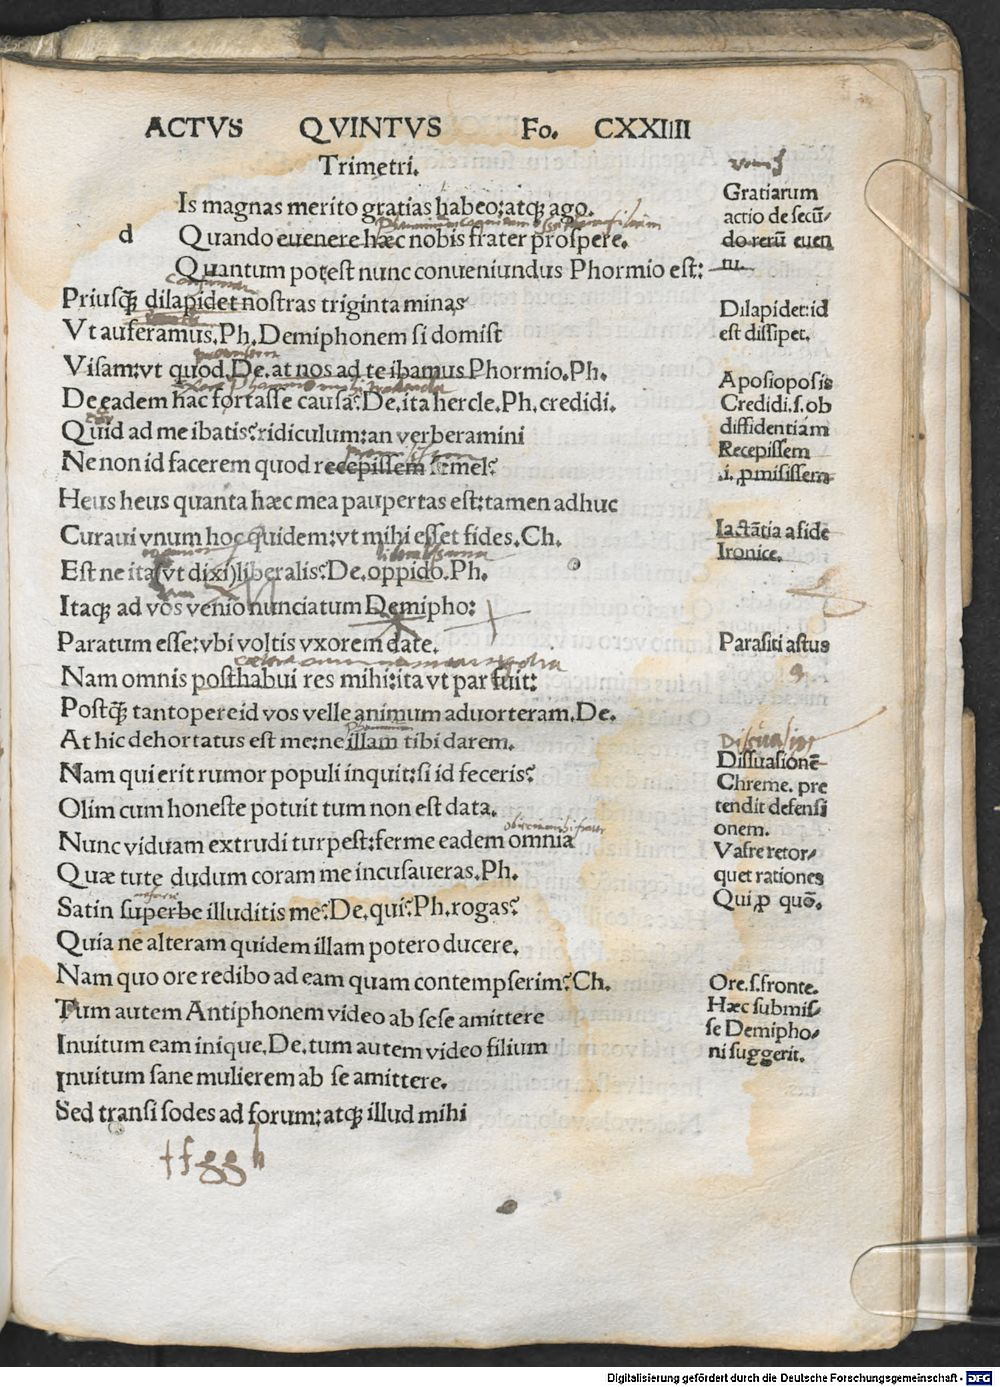 ACTVS QVINTVS Fo. CXXIIII
Trimetri.
d
Is magnas merito gratias habeo:atq; ago.
Quando euenere hæc nobis frater prospere.
Quantum potest nunc conueniundus Phormio est:
Priusq̃ dilapidet nostras triginta minas
Vt auferamus.Ph.Demiphonem si domist
Visam:vt quod.De.at nos ad te ibamus Phormio.Ph.
De eadem hac fortasse causa?De.ita hercle.Ph.credidi.
Quid ad me ibatis?ridiculum:an verberamini
Ne non id facerem quod recepissem semel?
Heus heus quanta hæc mea paupertas est:tamen adhuc
Curaui vnum hoc quidem:vt mihi esset fides.Ch.
Est ne ita(vt dixi)liberalis?De.oppido.Ph.
Itaq; ad vos venio nunciatum Demipho:
Paratum esse:vbi voltis vxorem date.
Nam omnis posthabui res mihi:ita vt par fuit:
Postq̃ tantopere id vos velle animum aduorteram.De.
At hic dehortatus est me:ne illam tibi darem.
Nam qui erit rumor populi inquit:si id feceris?
Olim cum honeste potuit tum non est data.
Nunc viduam extrudi turpest:ferme eadem omnia
Quæ tute dudum coram me incusaueras.Ph.
Satin superbe illuditis me?De.qui?Ph.rogas?
Quia ne alteram quidem illam potero ducere.
Nam quo ore redibo ad eam quam contempserim?Ch.
Tum autem Antiphonem video ab sese amittere
Inuitum eam inique.De.tum autem video filium
Inuitum sane mulierem ab se amittere.
Sed transi sodes ad forum:atq; illud mihi
Gratiarum
actio de secũ-
do rerũ euen
tu.
Dilapidet:id
est dissipet.
Aposioposis
Credidi.s.ob
diffidentiam
Recepissem
.i.ꝓmisissem
Iactãtia a fide
Ironice.
Parasiti astus
Dissuasionē
Chreme.pre
tendit defensi
onem.
Vafre retor-
quet rationes
Qui,ꝓ quō.
Ore.s.fronte.
Hæc submis-
se Demipho-
ni suggerit.
Digitalisierung gefördert durch die Deutsche Forschungsgemeinschaft - DFG